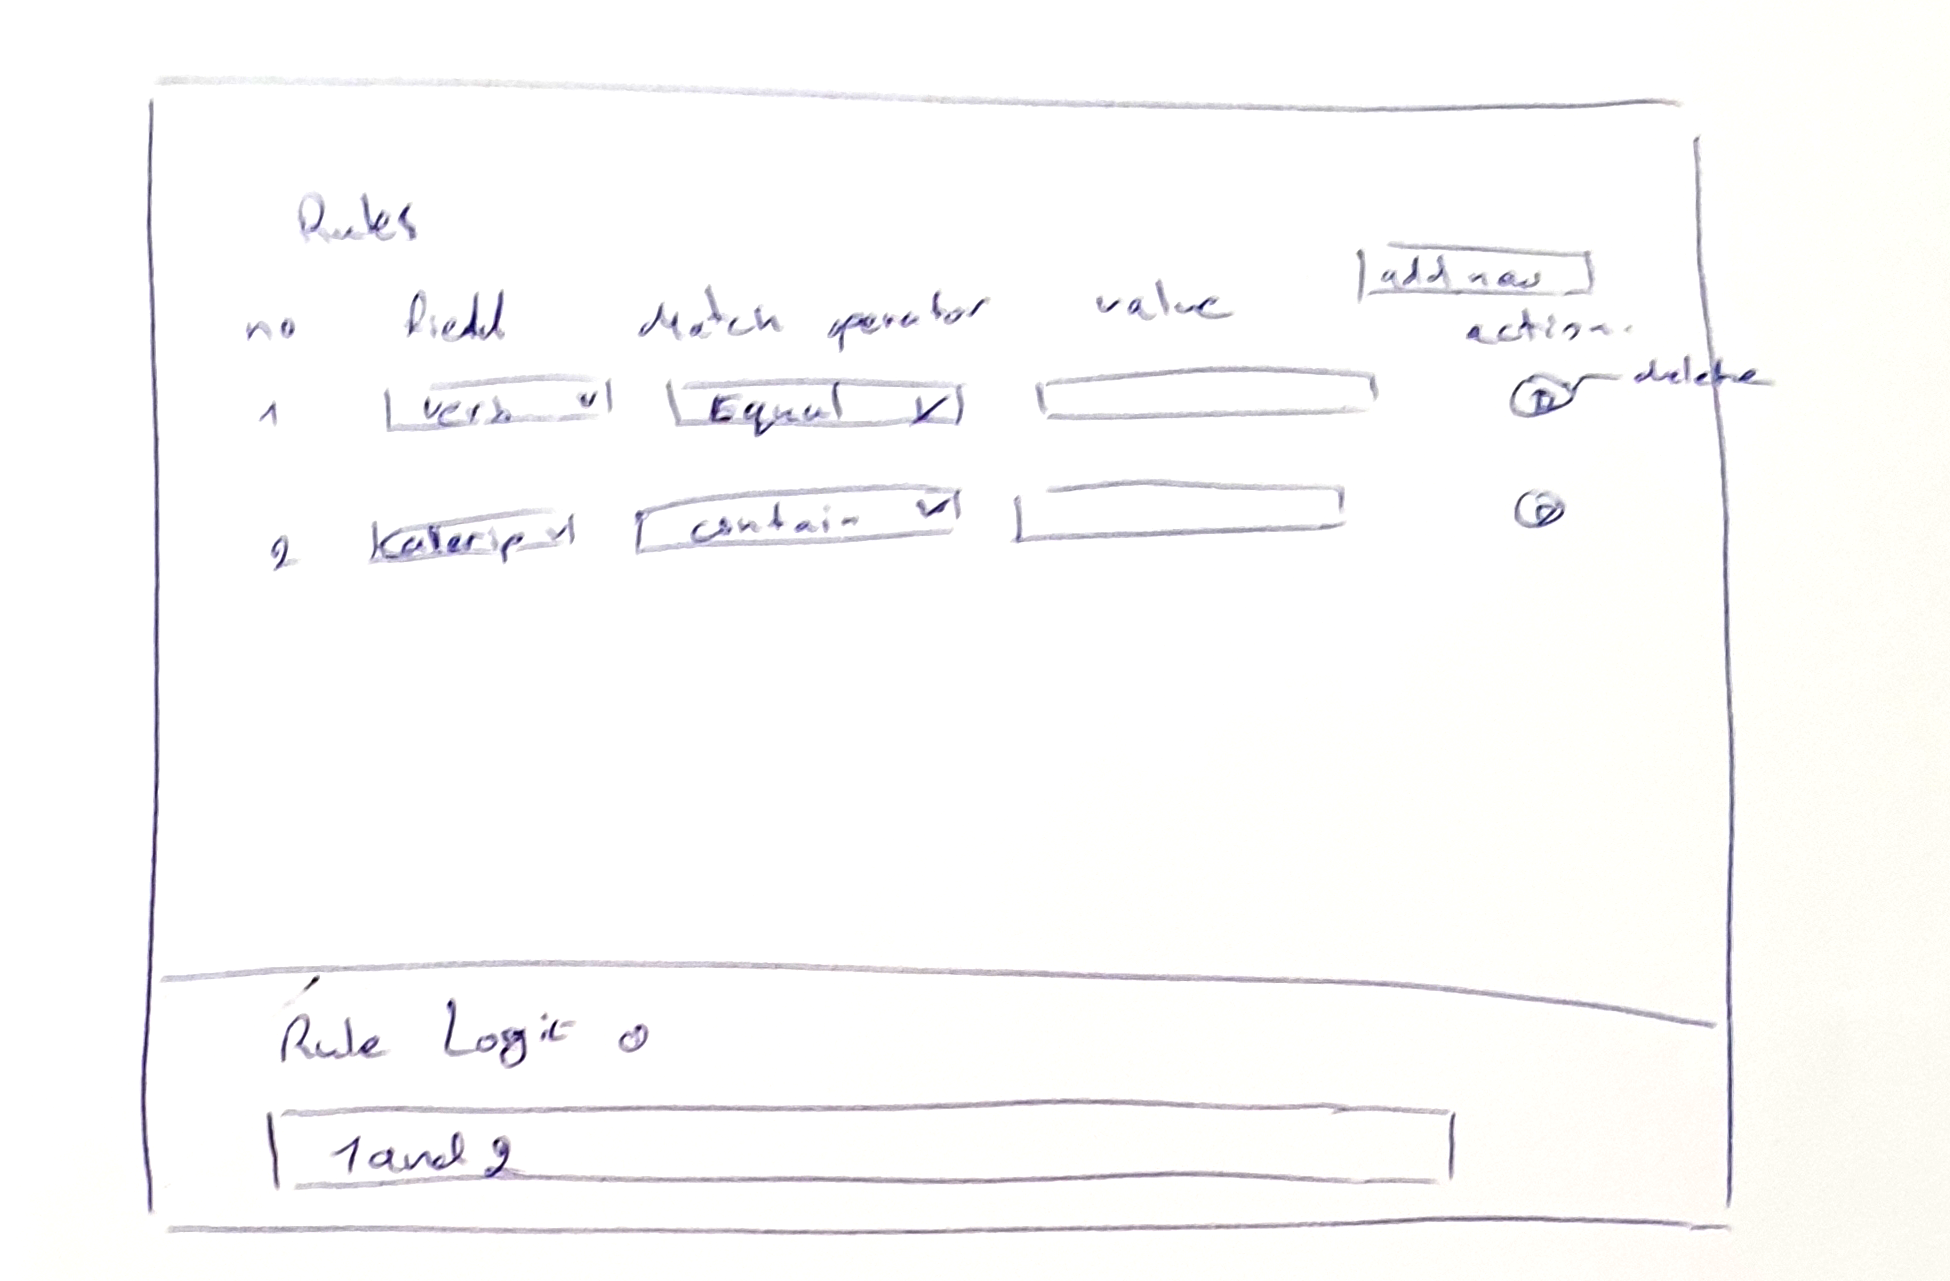 Rules
add new
no Field Match operator value action
1 Verb Equal delete
2 contain
Rule Logic
1 and 2